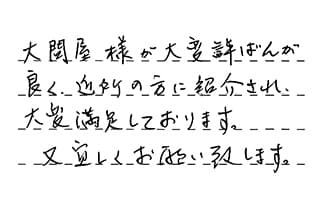 大問屋様が大変評ばんが
良く、近所の方に紹介され、
大変満足しております。
又宜しくお願い致します。